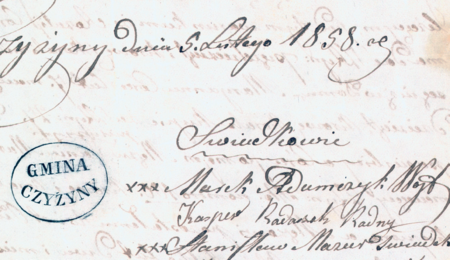 zyżyny dnia 5. Lutego 1858. r
Swiadkowie
GMINA
CZYŻYNY
xxx Marek Adamczyk Wójt
Kasper Radaszek Radny
xxx Stanisław Mazur Swiadek